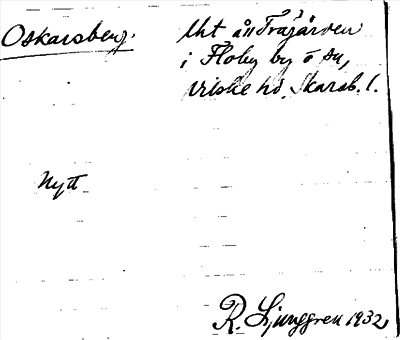 Oskarsberg.
Uht ån Träjärven
i Floby by o sn,
Vilske hd. Skarab. l.
Nytt
R. Ljunggren 1932